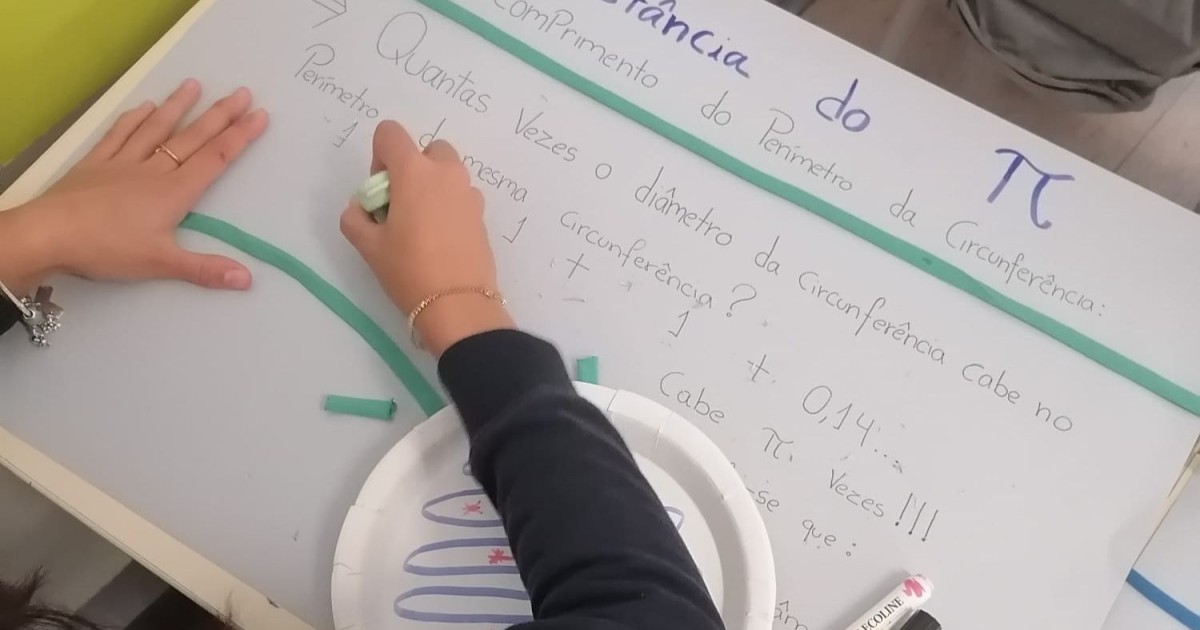 do π
comPrimento do Perímetro da Circunferência:
⇒ Quantas Vezes o diâmetro da Circunferência Cabe no
Perímetro da mesma Circunferência?
1 1 + 1 + 0,14...
Cabe π Vezes!!!
-se que:
ECOLINE